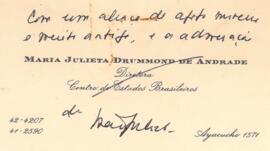 Com um abraço de afeto sincero
e muito antigo, e a admiração
MARIA JULIETA DRUMMOND DE ANDRADE
Diretora
Centro de Estudos Brasileiros
da
42-4207
41-2590
Ayacucho 1571